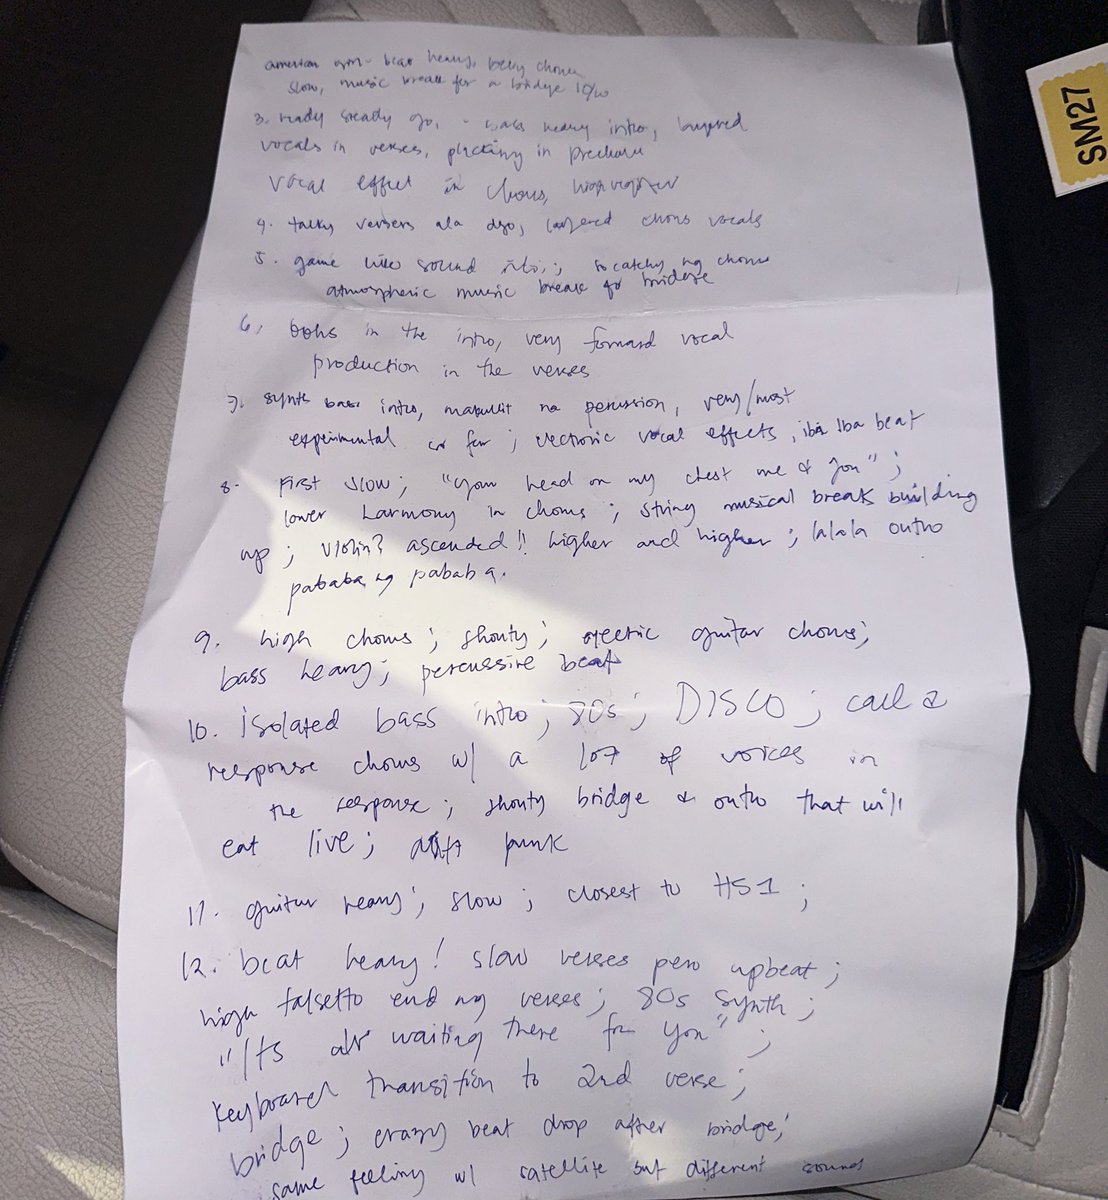 american - beat heavy, chorus
slow, music break for a bridge
3. ready steady go, - bass heavy intro, layered
vocals in verses, plucking in prechorus
vocal effect in chorus,
4. talky verses ala layered chorus vocals
5. game like sound intro; so catchy ng chorus
atmospheric music break for bridge
6. oohs in the intro, very forward vocal
production in the verses
7. synth bass intro, makulit na percussion, very/most
experimental so far; electronic vocal effects, iba iba beat
8. First slow; "your head on my chest me & you";
lower harmony in chorus; string musical break building
up; violin? ascended!! higher and higher; lalala outro
pababa ng pababa.
9. high chorus; shouty; electric guitar chorus;
bass heavy; percussive beat
10. isolated bass intro; 80s; DISCO; call &
response chorus w/ a lot of voices in
the response; shouty bridge & outro that will
eat live; daft punk
11. guitar heavy; slow; closest to HS1;
12. beat heavy! slow verses pero upbeat;
high falsetto end ng verses; 80s synth;
"It's all waiting there for you";
keyboard transition to 2nd verse;
bridge; crazy beat drop after bridge;
same feeling w/ satellite but different sound
SM27